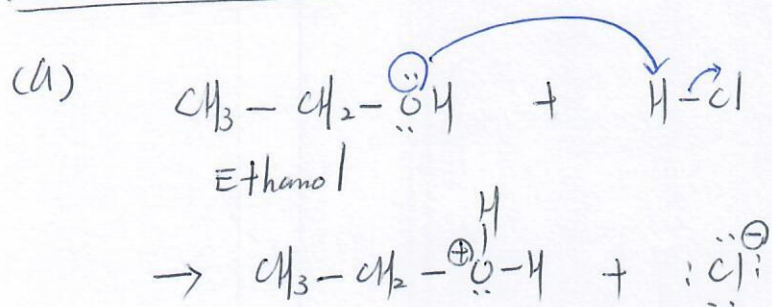 (a) CH₃ – CH₂ – ÖH + H – Cl
Ethanol
H
→ CH₃ – CH₂ – ⊕O – H + :Cl:⊖